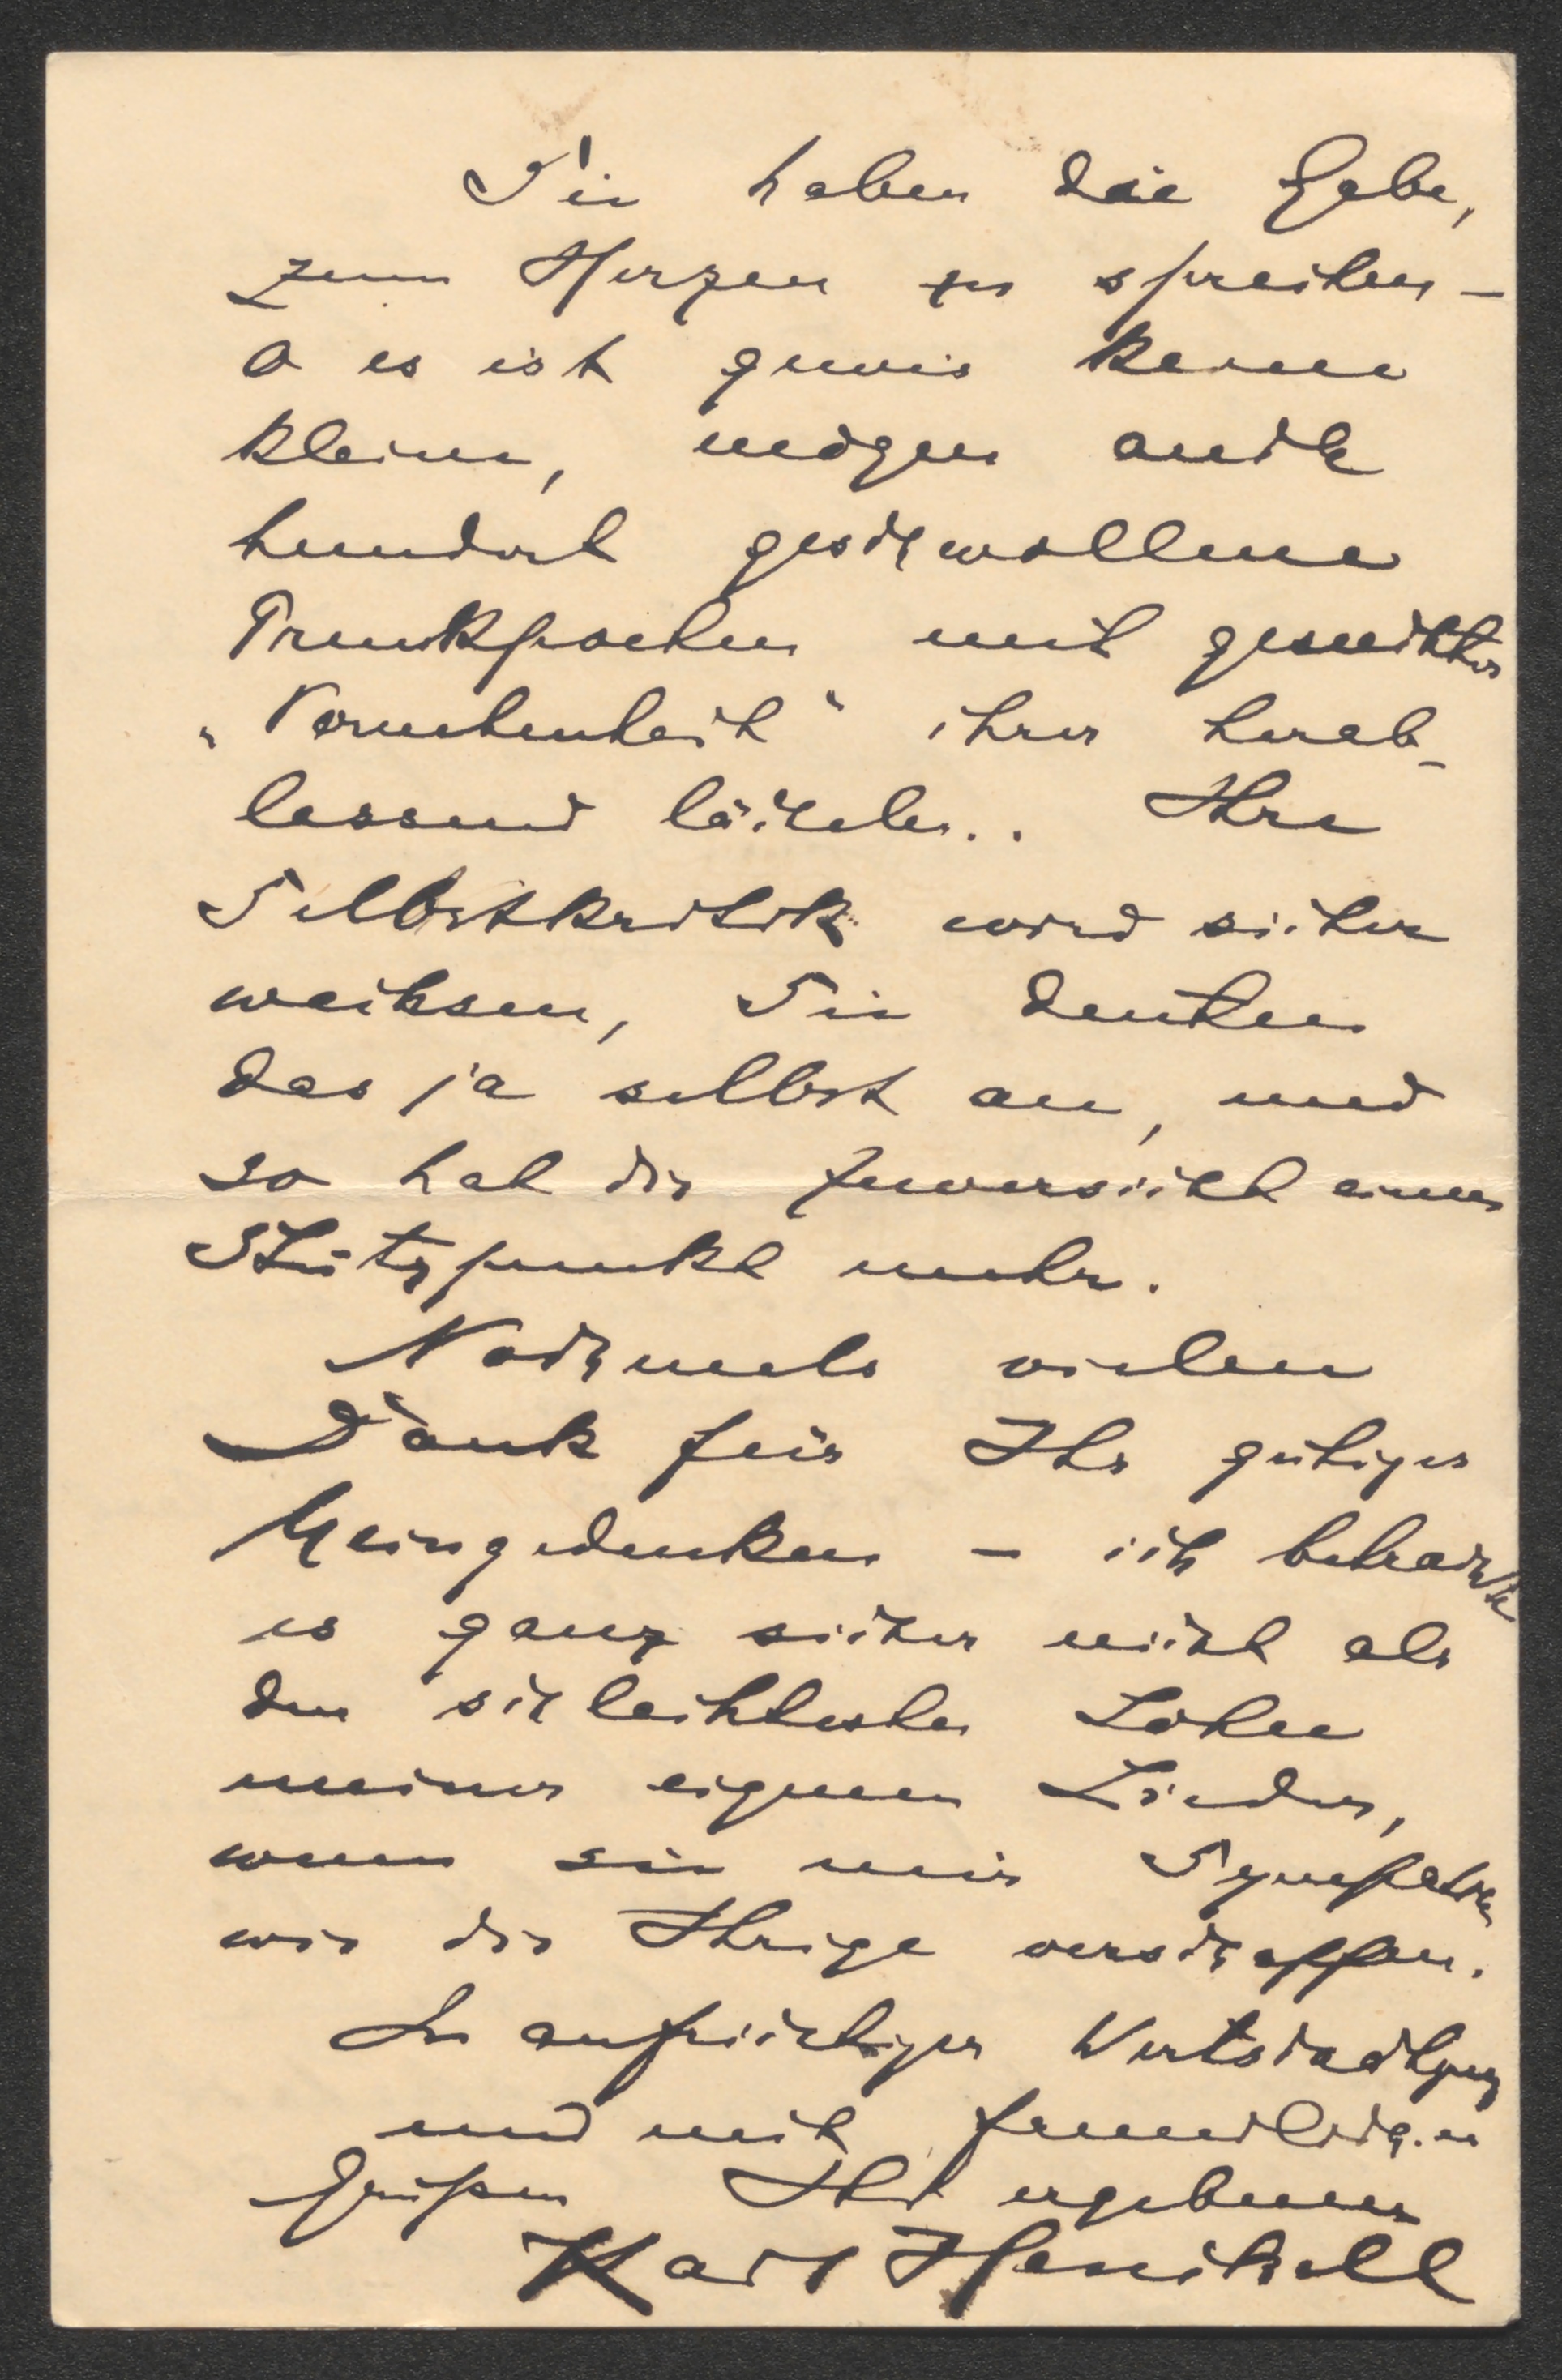 Sie haben die Gabe,
zum Herzen zu sprechen –
o es ist gewis keine
kleine, mögen auch
hundert geschwollene
Prunkpoeten mit gesuchter
„Vornehmheit“ ihrer herab-
lassend lächeln.. Ihre
Selbstkritik wird sicher
wachsen, Sie deuten
das ja selbst an, und
so hat die Zuversicht einen
Stützpunkt mehr.
Nochmals vielen
Dank für Ihr gütiges
Meingedenken – ich betrachte
es ganz sicher nicht als
den schlechtesten Lohn
meiner eignen Lieder,
wenn sie mir Sympathien
wie die Ihrige verschaffen.
In aufrichtiger Wertschätzung
und mit freundlichen
Grüßen Ihr ergebener
Karl Henckell